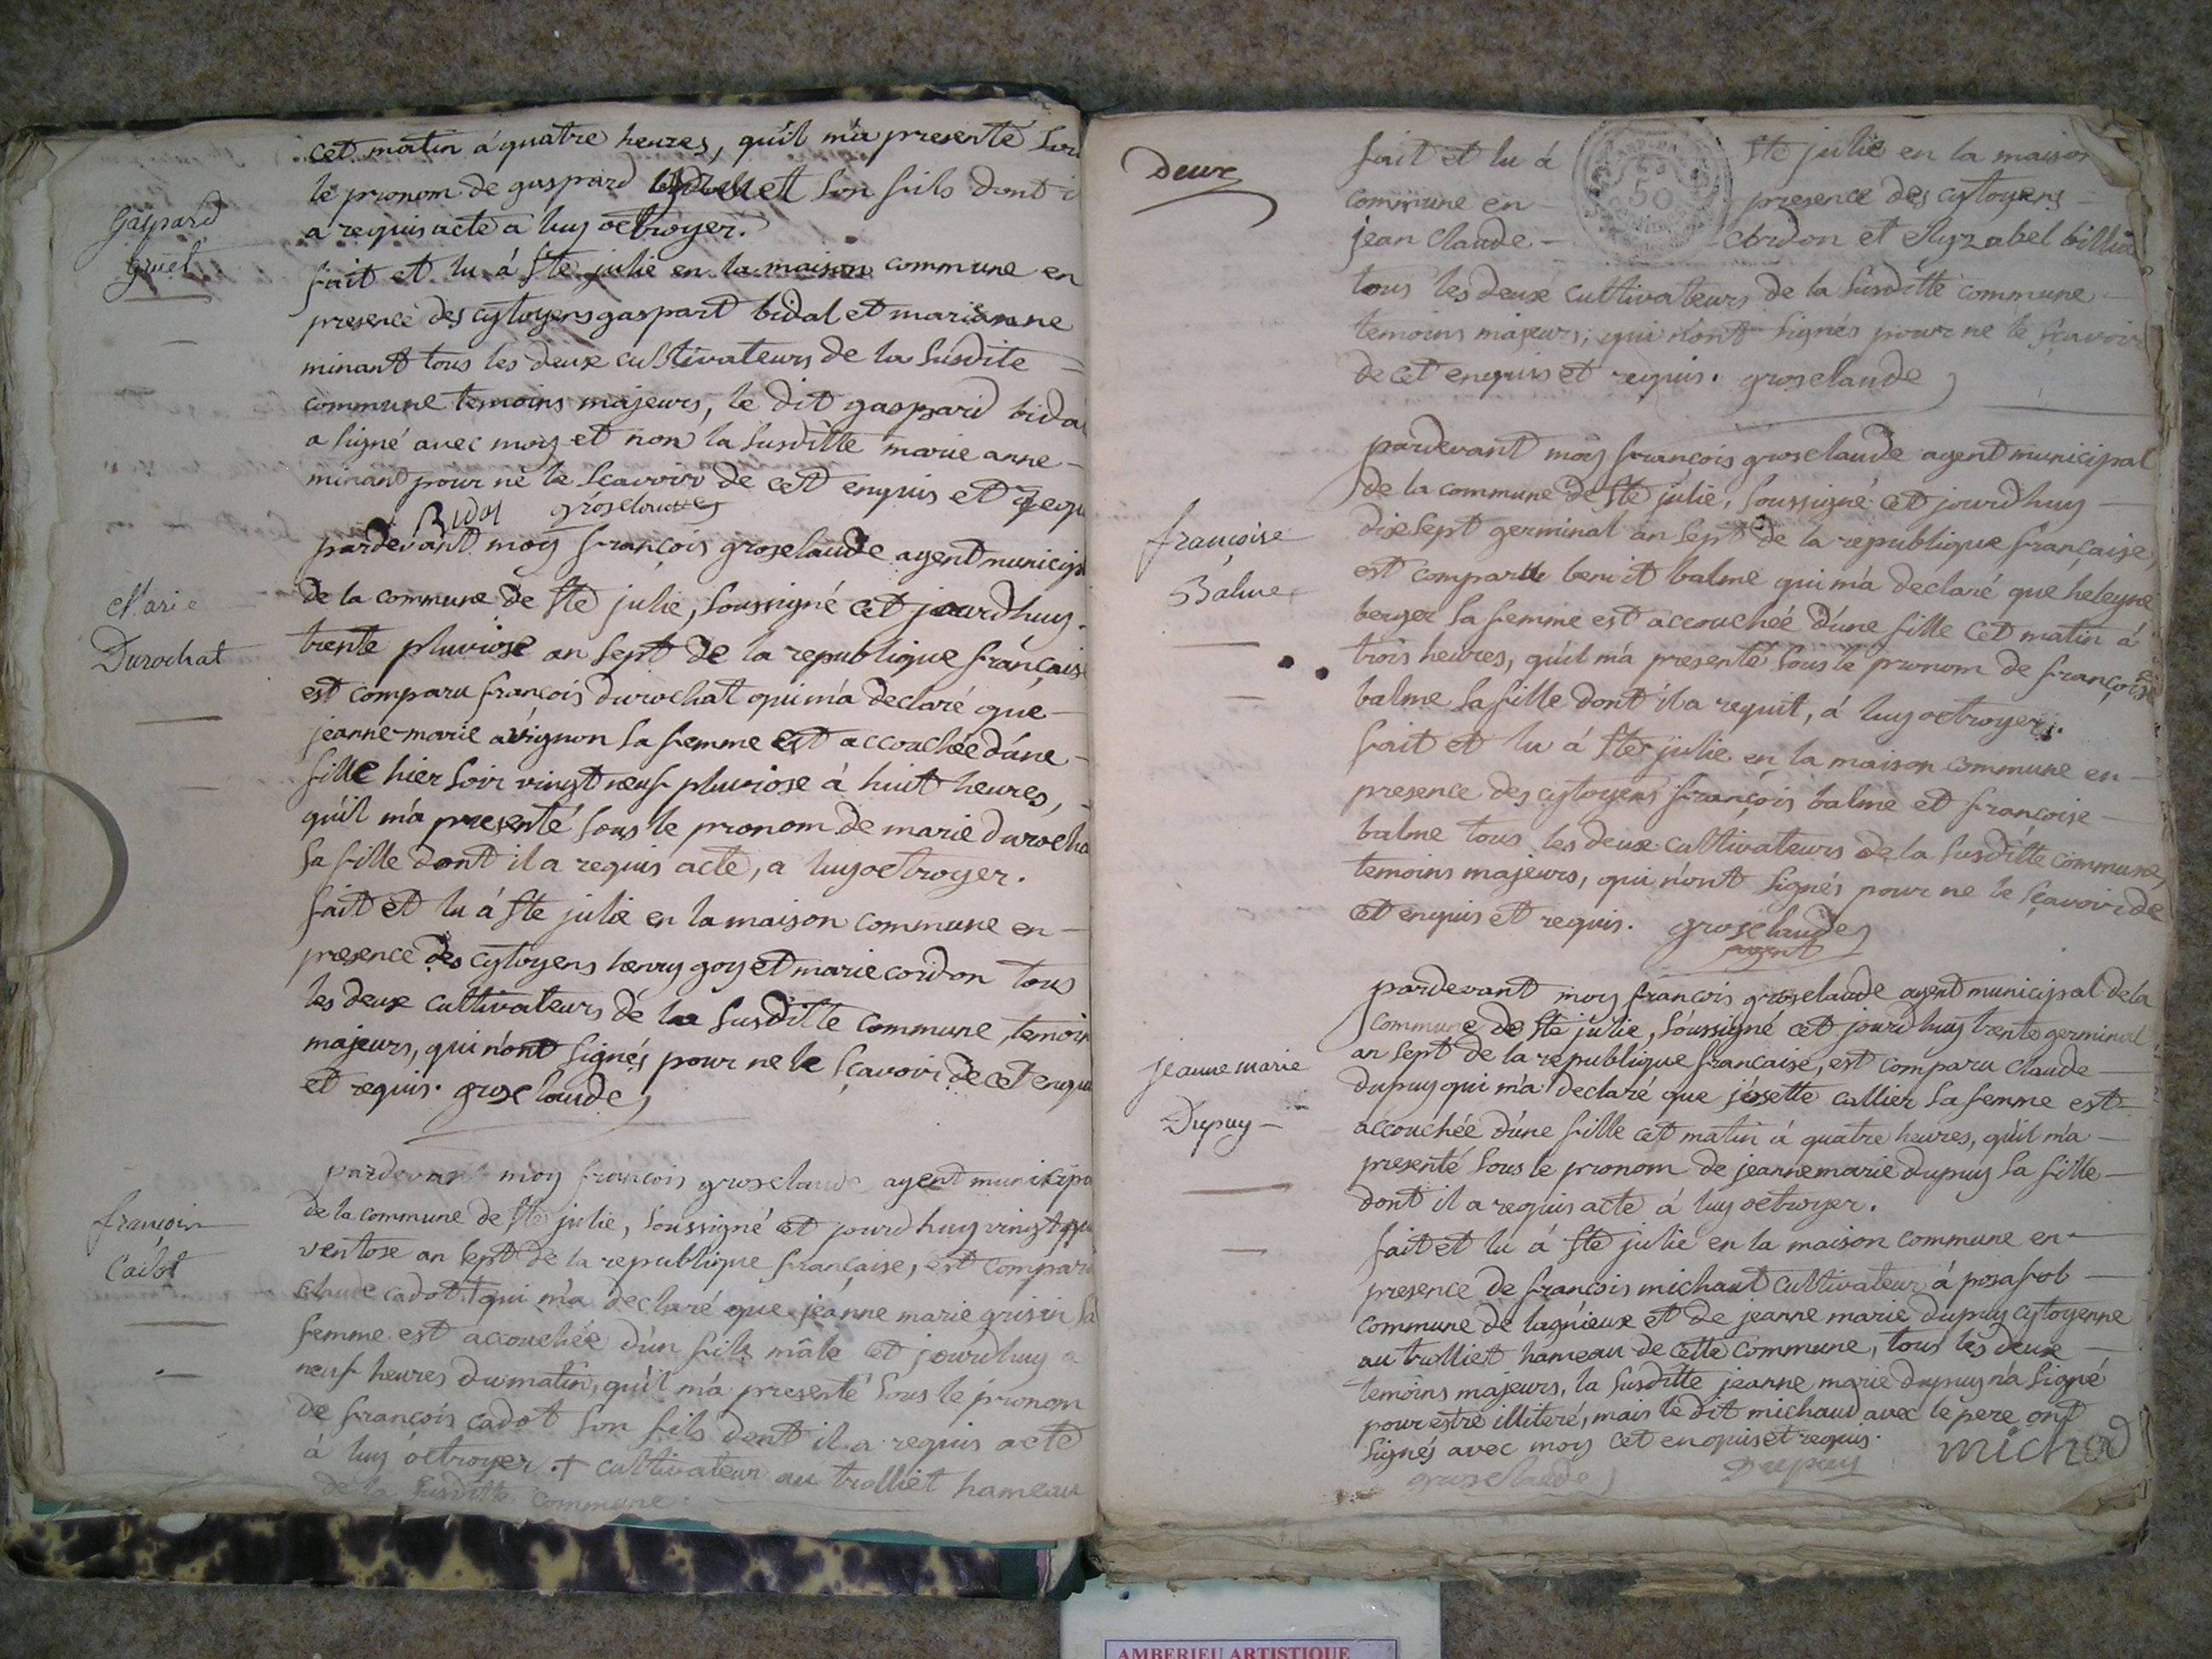 cet matin à quatre heures, qu'il m'a presenté sou
le pronom de gaspard son fils dont i
a requis acte a luy octroyer.
Gaspard
gruel
fait et lu á Ste julie en la maison commune en
presence des cytoyens gaspart bidal et marianne
minant tous les deux cultivateurs de la susdite
commune temoins majeurs, le dit gaspard bida
a signé avec moy et non la susditte marie anne
minant pour ne le sçavoir de cet enquis et requ
Bidal groselaude
pardevant moy françois groselaude agent municip
Marie
Durochat
de la commune de Ste julie, soussigné cet jourdhuy
trente pluviose an sept de la republique français
est comparu françois durochat qui m'a declaré que
jeanne-marie avignon sa femme est accouchée d'une
fille hier soir vingt neuf pluviose à huit heures,
qu'il m'a presenté sous le pronom de marie durocha
sa fille dont il a requis acte, a luy octroyer.
fait et lu á Ste julie en la maison commune en
presence des cytoyens henry goy et marie cordon tous
les deux cultivateurs de la susditte commune, temoin
majeurs, qui n'ont signés pour ne le sçavoir de cet enqui
et requis. groselaude
pardevant moy françois groselaude agent municipa
de la commune de Ste julie, soussigné cet jourdhuy vingt
françois
Cadot
ventose an sept de la republique française, est comparu
claude cadot + qui m'a declaré que jeanne marie grisin sa
femme est accouchée d'un fils mâle cet jourdhuy a
neuf heures du matin, qu'il m'a presenté sous le pronom
de françois cadot son fils dont il a requis acte
à luy octroyer. + cultivateur au trolliet hameau
de la susditte commune.
Deux
fait et lu á Ste julie en la maison
commune en presence des cytoyens
jean claude cordon et elyzabel
tous les deux cultivateurs de la susditte commune
temoins majeurs, qui n'ont signés pour ne le sçavoir
de cet enquis et requis. groselaude
pardevant moy françois groselaude agent municipal
de la commune de Ste julie, soussigné cet jourdhuy
françoise
Balme
dixsept germinal an sept de la republique française,
est comparu benoit balme qui m'a declaré que heleyne
berger sa femme est accouchée d'une fille cet matin á
trois heures, qu'il m'a presenté sous le pronom de françoise
balme sa fille dont il a requit, á luy octroyer.
fait et lu á Ste julie en la maison commune en
presence des cytoyens françois balme et françoise
balme tous les deux cultivateurs de la susditte commune,
temoins majeurs, qui n'ont signés pour ne le sçavoir de
cet enquis et requis. groselaude
agent
pardevant moy françois groselaude agent municipal de la
commune de Ste julie, soussigné cet jourdhuy trente germinal
jeanne marie
Dupuy
an sept de la republique française, est comparu claude
dupuy qui m'a declaré que josette callier sa femme est
accouchée d'une fille cet matin á quatre heures, qu'il m'a
presenté sous le pronom de jeanne marie dupuy sa fille
dont il a requis acte á luy octroyer.
fait et lu á Ste julie en la maison commune en
presence de françois michaut cultivateur á posafol
commune de lagnieux et de jeanne marie dupuy cytoyenne
au trolliet hameau de cette commune, tous les deux
temoins majeurs, la susditte jeanne marie dupuy n'a signé
pour estre illiteré, mais le dit michaud avec le pere ont
signés avec moy cet enquis et requis. michod
groselaude Dupuy
AMBERIEU ARTISTIQUE